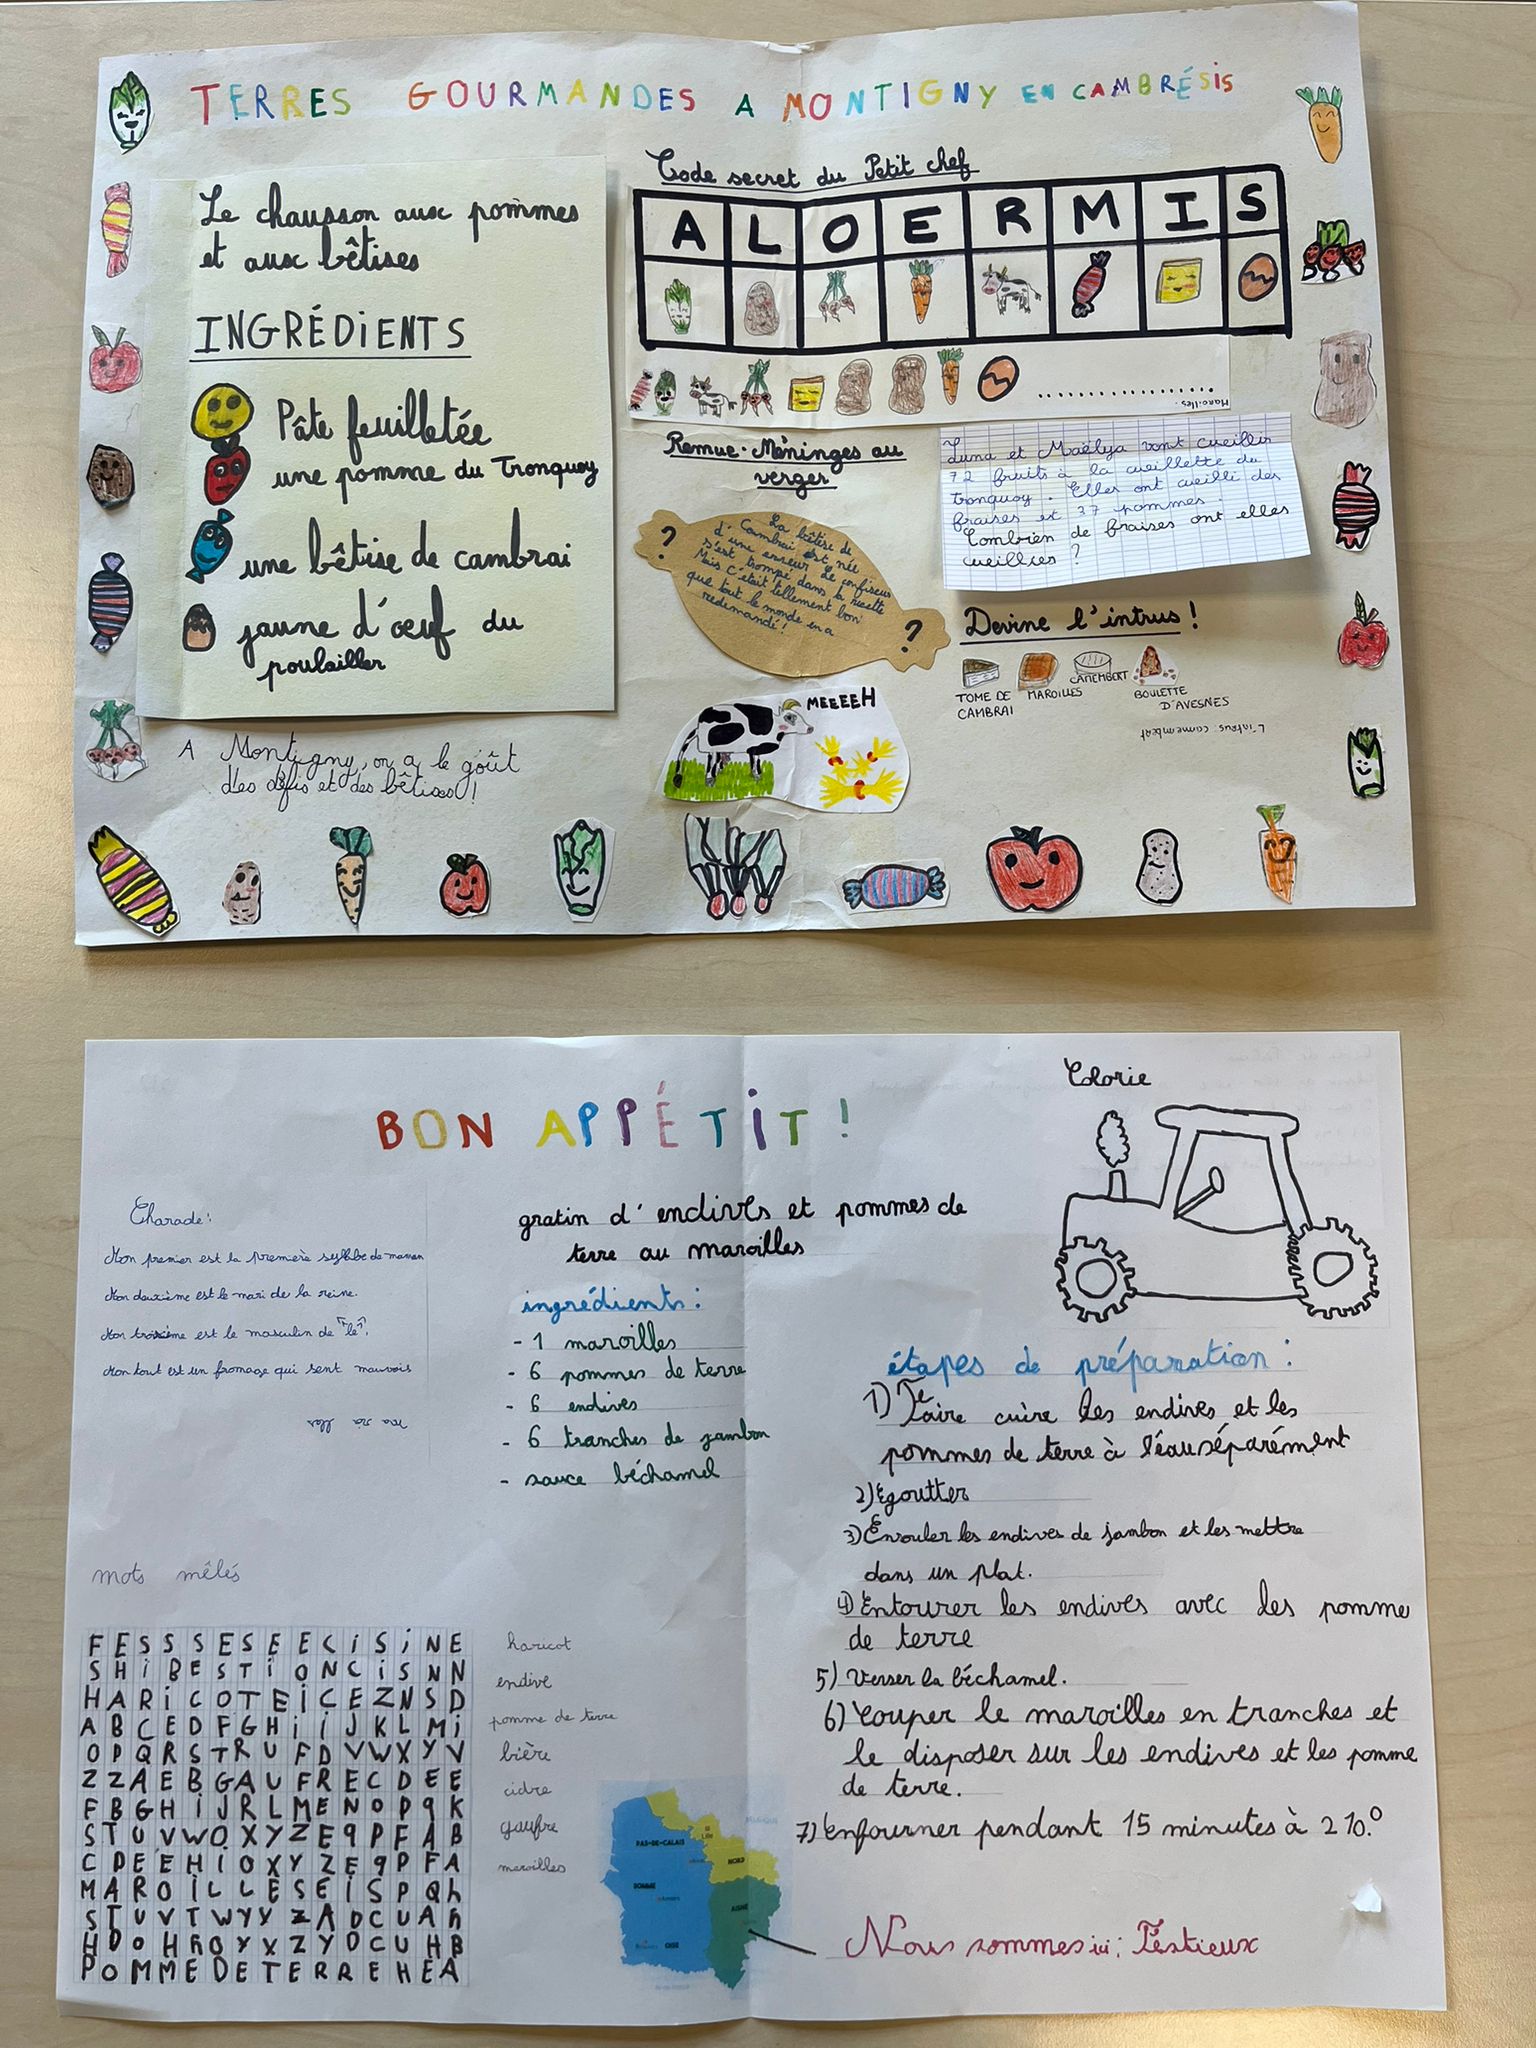 TERRES GOURMANDES A MONTIGNY EN CAMBRÉSIS
Le chausson aux pommes
et aux bêtises
INGRÉDIENTS
Pâte feuilletée
une pomme du Tronquoy
une bêtise de cambrai
jaune d'œuf du
poulailler
A Montigny, on a le goût
des défis et des bêtises !
Code secret du Petit chef
A L O E R M I S
Maroilles.
Remue-Méninges au
verger
? ?
La bêtise de
Cambrai est née
d'une erreur. Le confiseur
s'est trompé dans la recette
Mais c'était tellement bon
que tout le monde en a
redemandé !
Luna et Maëlya vont cueillir
72 fruits à la cueillette du
tronquoy. Elles ont cueilli des
fraises et 37 pommes.
Combien de fraises ont elles
cueillies ?
Devine l'intrus !
TOME DE
CAMBRAI
MAROILLES
CAMEMBERT
BOULETTE
D'AVESNES
L'intrus : camembert
MEEEEH
BON APPÉTIT !
Charade :
Mon premier est la première syllbe de maman
Mon deuxième est le mari de la reine.
Mon troisième est le masculin de "le".
Mon tout est un fromage qui sent mauvais
ma roi lles
gratin d'endives et pommes de
terre au maroilles
ingrédients :
- 1 maroilles
- 6 pommes de terre
- 6 endives
- 6 tranches de jambon
- sauce béchamel
Colorie
étapes de préparation :
1) Faire cuire les endives et les
pommes de terre à l'eau séparément
2) Egoutter
3) Enrouler les endives de jambon et les mettre
dans un plat.
4) Entourer les endives avec des pomme
de terre
5) Verser la béchamel.
6) Couper le maroilles en tranches et
le disposer sur les endives et les pomme
de terre.
7) Enfourner pendant 15 minutes à 210.°
mots mêlés
F E S S S E S E E C i S i N E
S H i B E S T i O N C i S N N
H A R i C O T E I C E Z N S D
A B C E D F G H i i J K L M i
O P Q R S T R U F D V W X Y V
Z Z A E B G A U F R E C D E E
F B G H i J R L M E N O P q K
S T U V W O X Y Z E q P F A B
C D E E H i O X Y Z E q P F A
M A R O i L L E S E i S P Q h
S T U V T W Y Y Z A D C U A h
H D O H h O Y X Z Y D C U H B
P O M M E D E T E R R E H E A
haricot
endive
pomme de terre
bière
cidre
gaufre
maroilles
PAS-DE-CALAIS
Lille
NORD
SOMME
AISNE
OISE
Nous sommes ici : Festieux